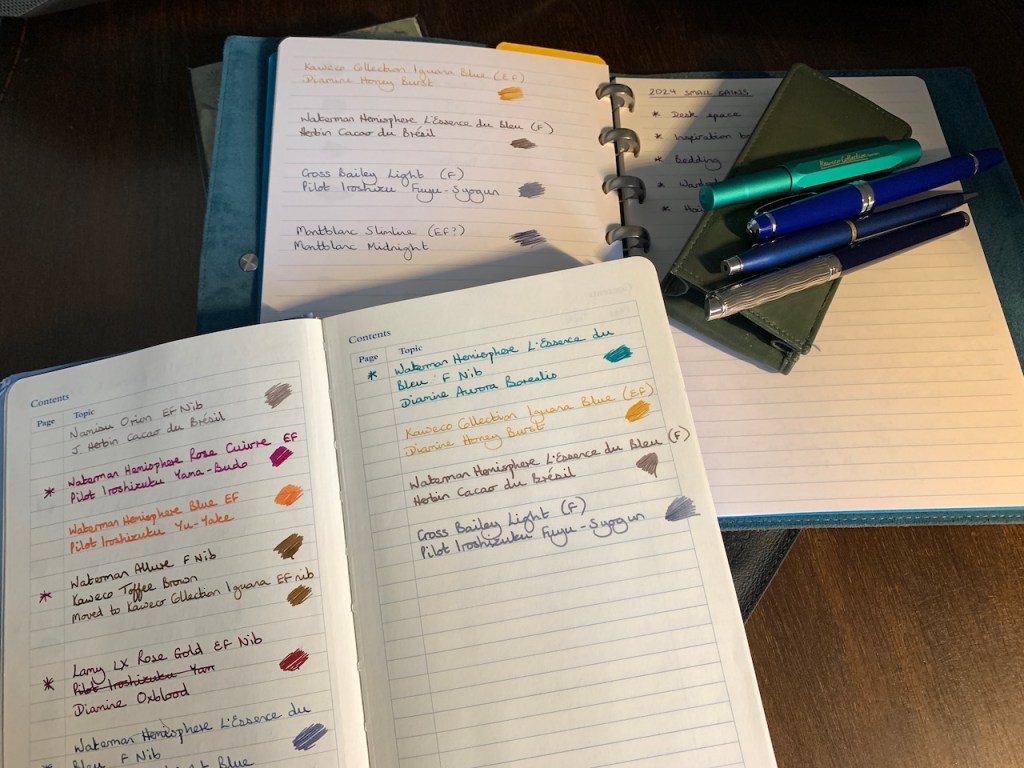 Kaweco Collection Iguana Blue (EF)
Diamine Honey Burst
Waterman Hemisphere L'Essence du Bleu (F)
Herbin Cacao du Brésil
Cross Bailey Light (F)
Pilot Iroshizuku Fuyu-Syogun
Montblanc Slimline (EF?)
Montblanc Midnight
2024 SMALL GAINS
* Desk space
* Inspiration
* Bedding
*
*
Kaweco Collection
Contents
Page Topic
Nanvau Orion EF Nib
J. Herbin Cacao du Brésil
* Waterman Hemisphere Rose Cuivre EF
Pilot Iroshizuku Yama-Budo
Waterman Hemisphere Blue EF
Pilot Iroshizuku Yu-Yake
* Waterman Allure F Nib
Kaweco Toffee Brown
Moved to Kaweco Collection Iguana EF nib
* Lamy LX Rose Gold EF Nib
Pilot Iroshizuku Yam
Diamine Oxblood
Waterman Hemisphere L'Essence du
Bleu F Nib
Blue
Contents
Page Topic
* Waterman Hemisphere L'Essence du
Bleu F Nib
Diamine Aurora Borealis
Kaweco Collection Iguana Blue (EF)
Diamine Honey Burst
Waterman Hemisphere L'Essence du Bleu (F)
Herbin Cacao du Brésil
Cross Bailey Light (F)
Pilot Iroshizuku Fuyu-Syogun